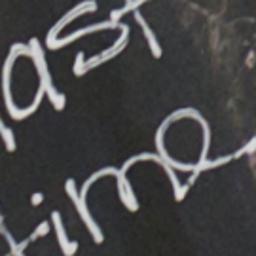 ast
time